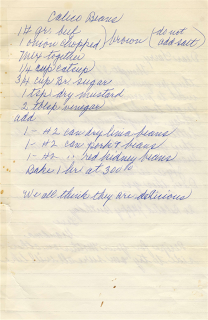 Calico Beans
1 # gr. beef
1 onion chopped) brown (do not add salt)
Mix together
1/4 cup catsup
3/4 cup Br. sugar
1 tsp dry mustard
2 tblsp vinegar
add
1 - #2 can dry lima beans
1 - #2 can pork & beans
1 - #2 " red kidney beans
Bake 1 hr at 300°
We all think they are delicious